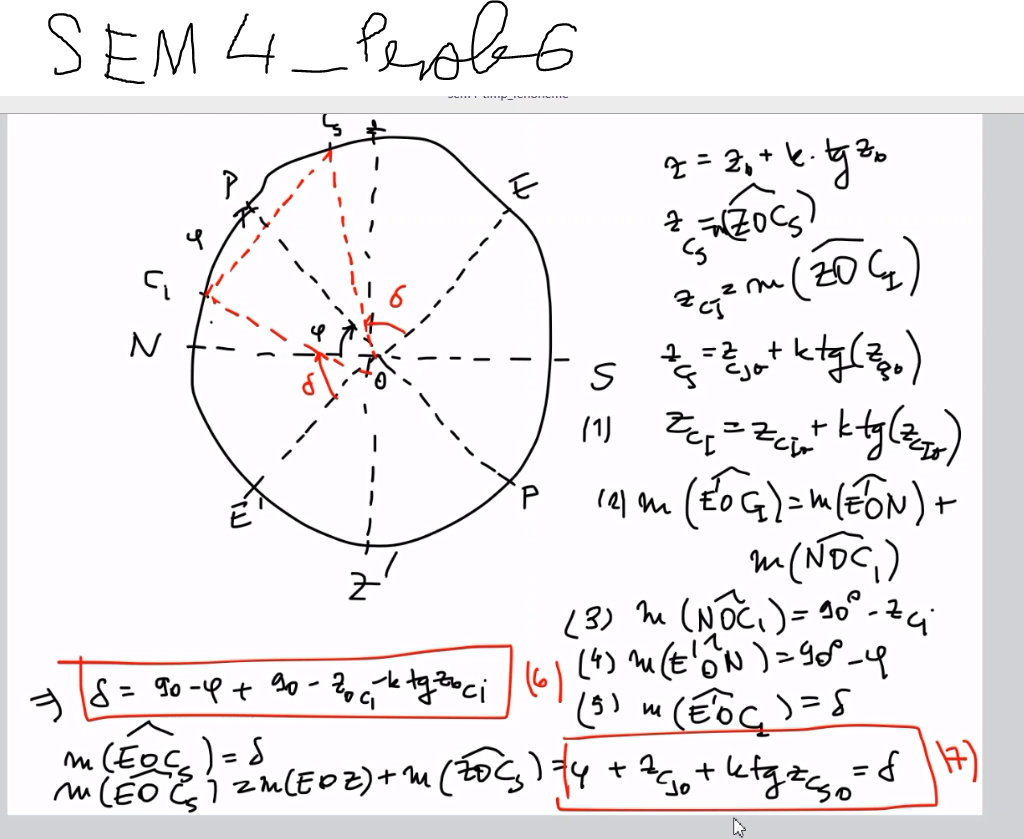 SEM 4_
Cs
Z
P
E
φ
C1
N
φ
δ
δ
O
S
E'
P
Z'
z = z0 + k · tg z0
zCS = m(ZOCS)
zCI = m(ZOCI)
zCS = zCS0 + k tg(zCS0)
(1) zCI = zCI0 + k tg(zCI0)
(2) m(E'OCI) = m(E'ON) +
m(NOC1)
(3) m(NOC1) = 90° - zCi
(4) m(E'ON) = 90° - φ
(5) m(E'OCI) = δ
⇒ δ = 90 - φ + 90 - z0C1 - k tg z0Ci (6)
m(EOCS) = δ
m(EOCS) = m(EOZ) + m(ZOCS) = φ + zCS0 + k tg zCS0 = δ (7)